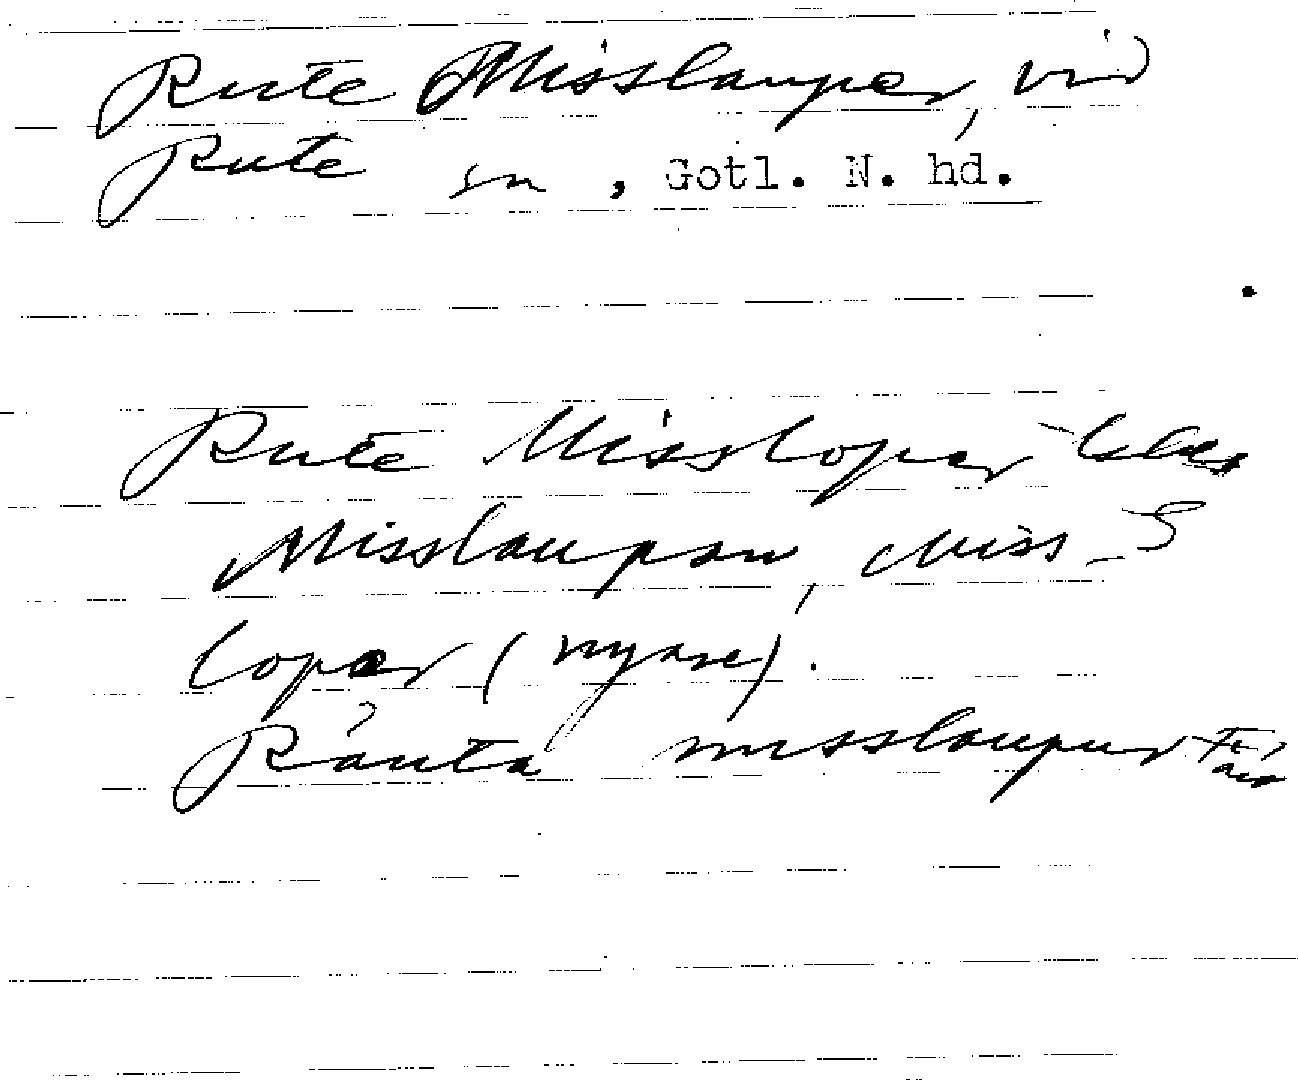 Rute Misslauper, vid
Rute sn, Gotl. N. hd.
Rute Missloper
Misslaupar, Miss-
loper (nyare).
Räuta misslaupur